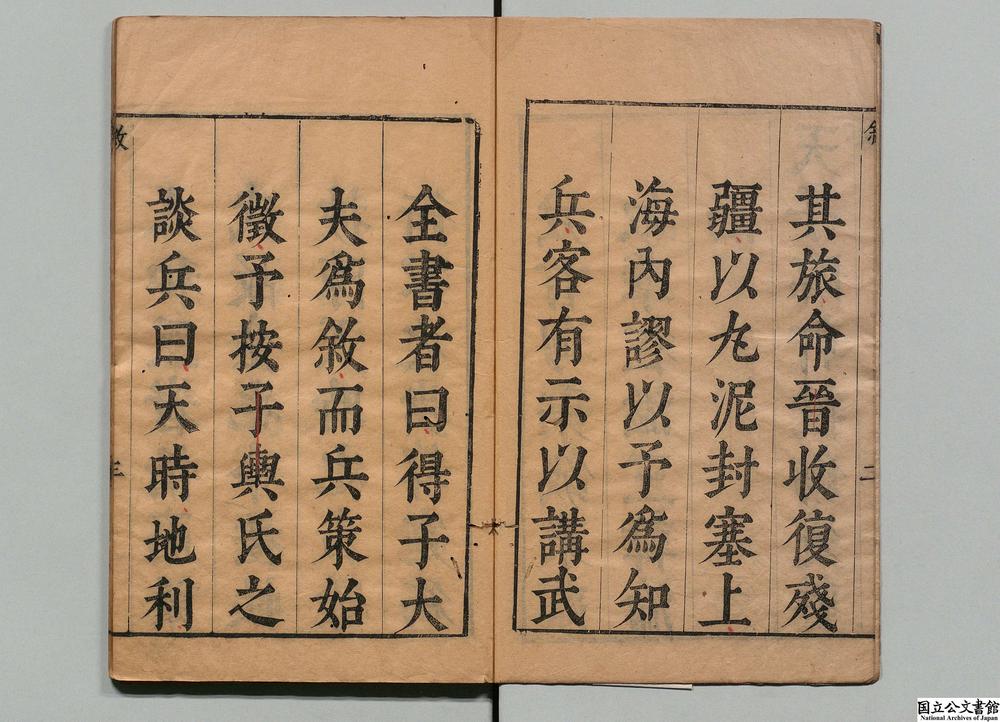 其旅命晉收復殘
疆以九泥封塞上
海內謬以予為知
兵客有示以講武
全書者曰得子大
夫為敘而兵策始
徵予按子輿氏之
談兵曰天時地利
敘
二
三
国立公文書館
National Archives of Japan